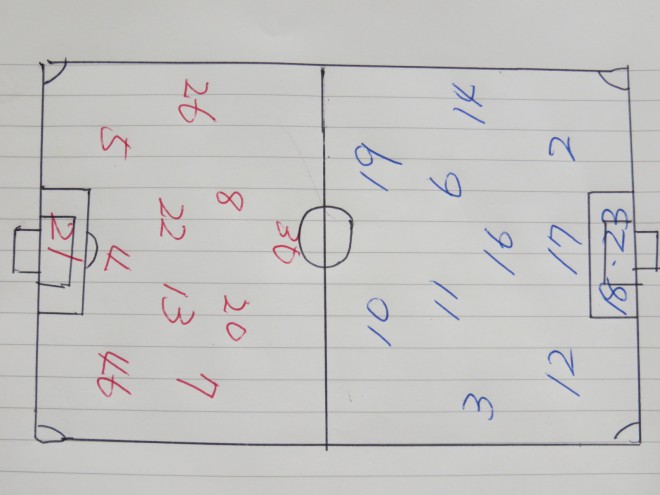 26
14
5
19
2
6
8
22
21
36
4
16
17
18·23
13
20
11
10
46
7
3
12